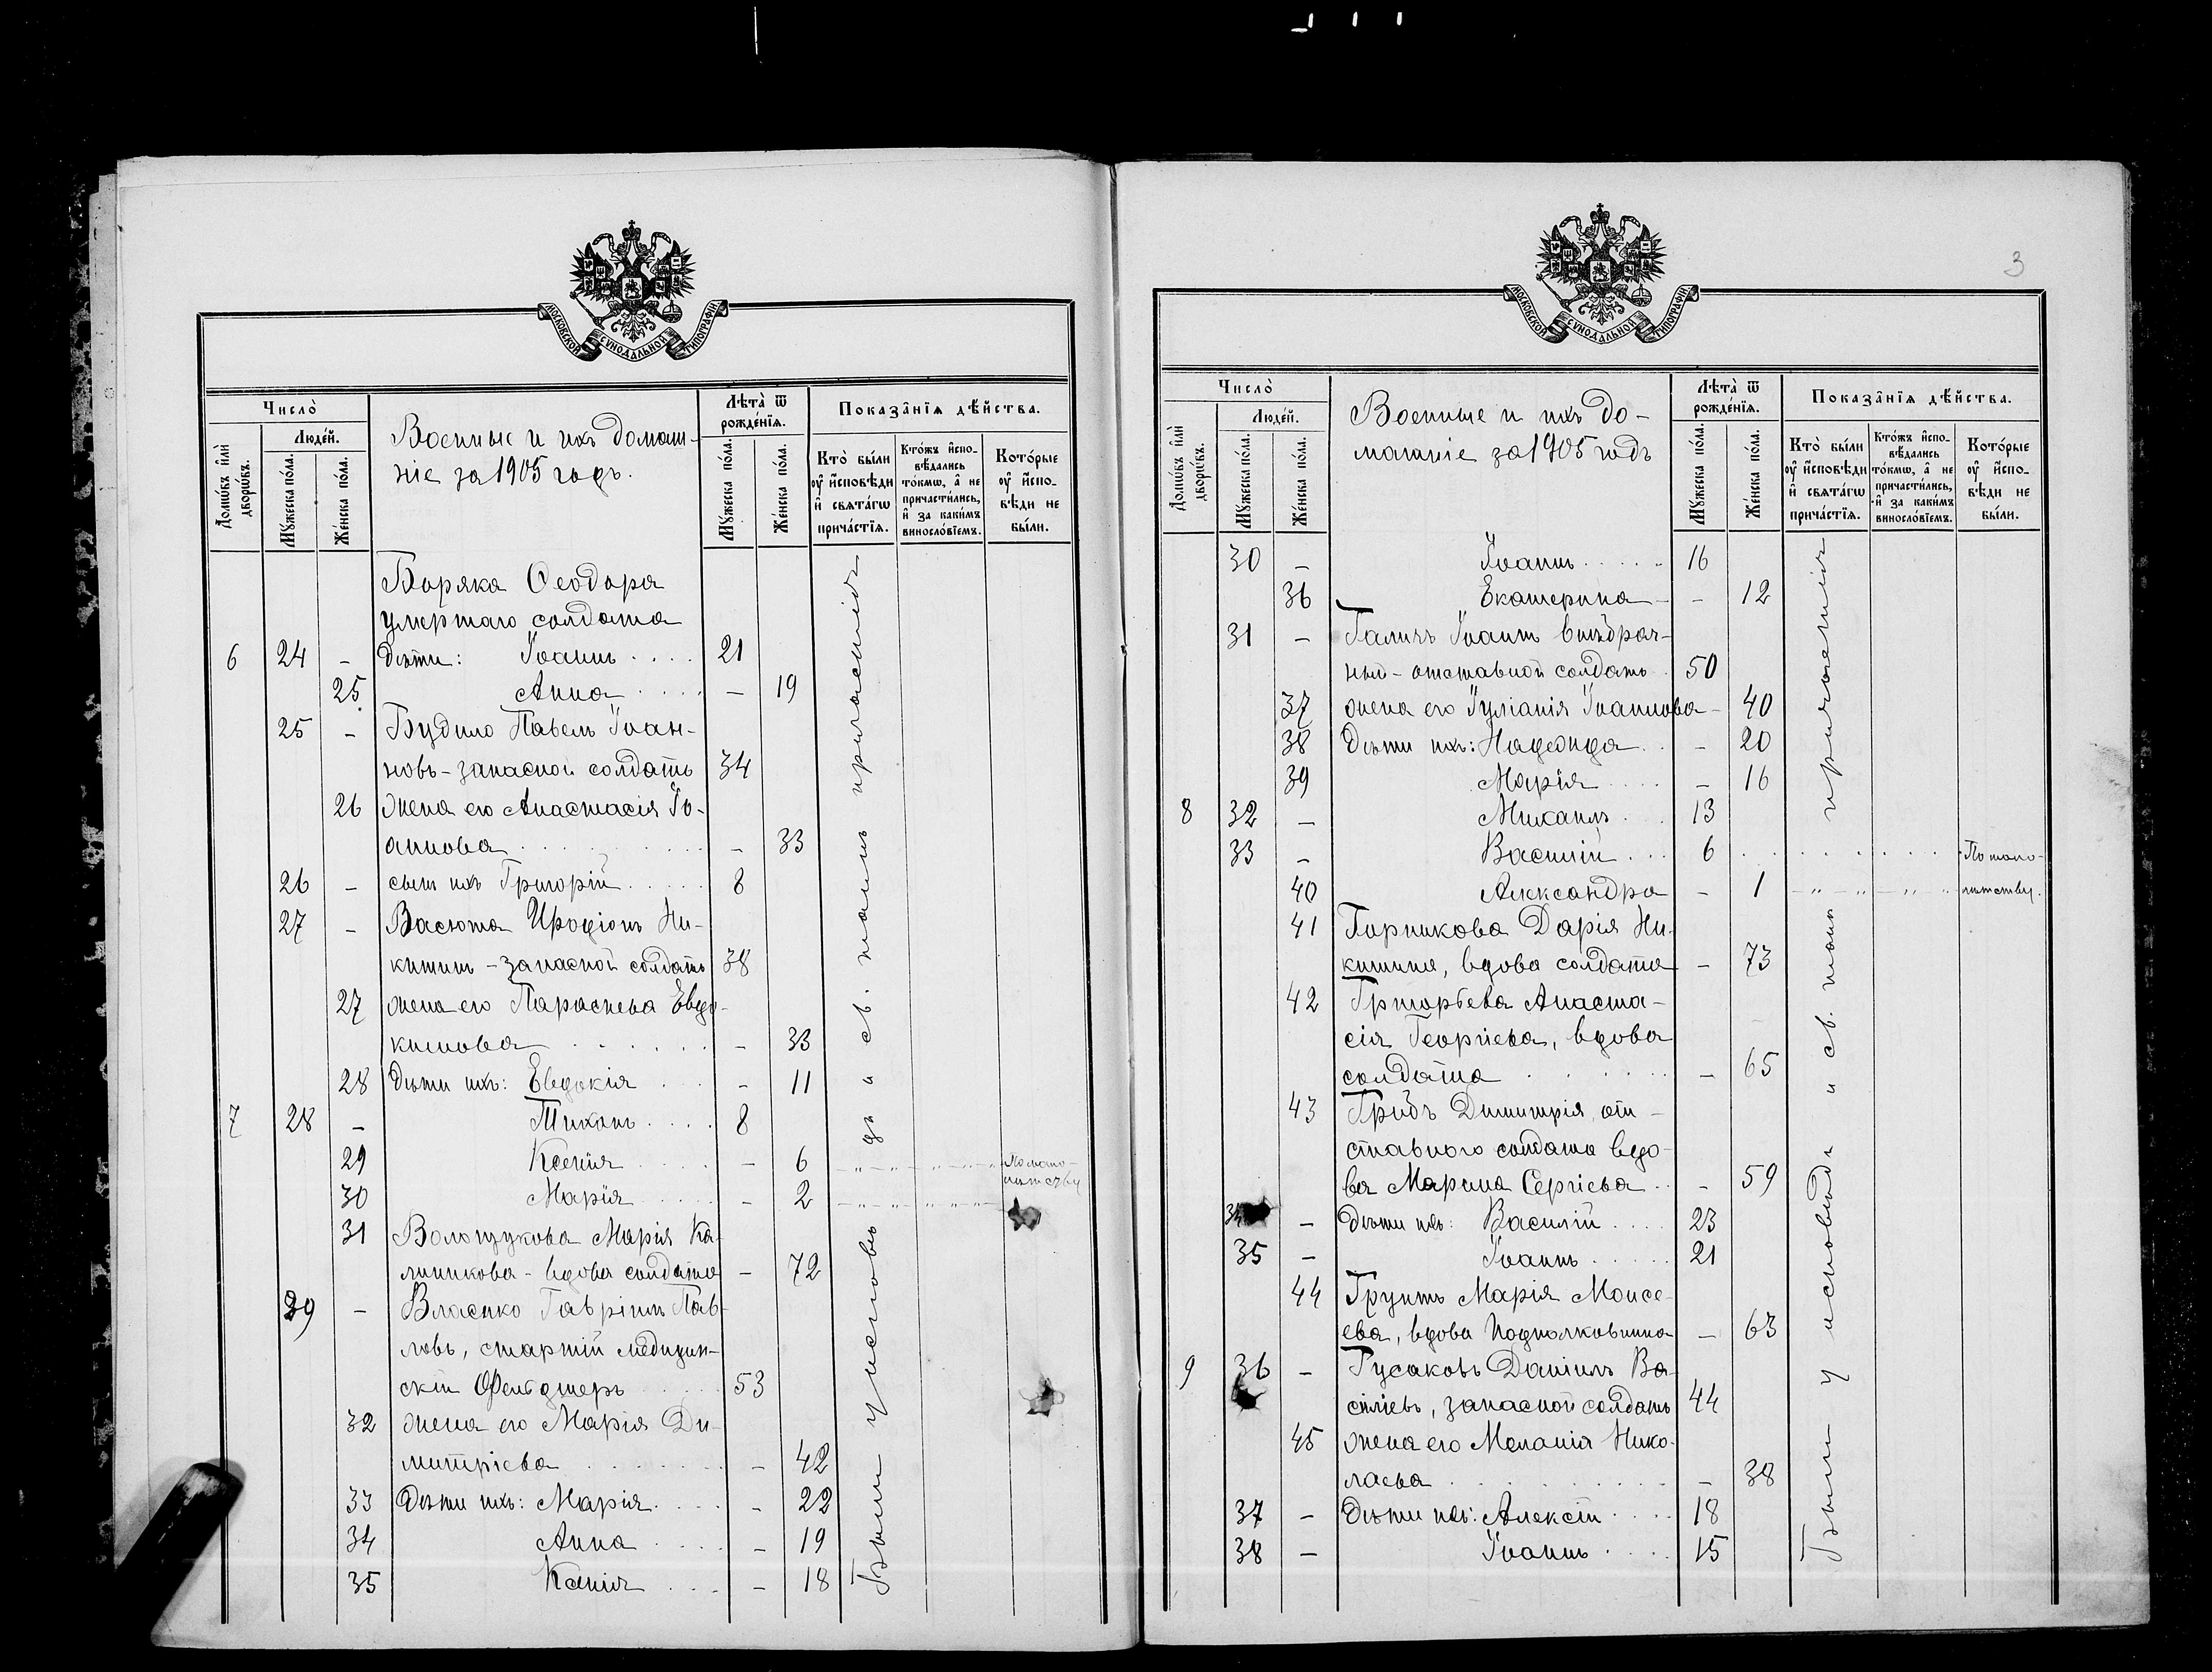 3
МОСКОВСКОЙ СУНОДАЛЬНОЙ ТИПОГРАФІИ
Число̀
Людей.
Домѡвъ и҆лѝ дворѡвъ.
Мꙋжеска по́ла.
Же́нска по́ла.
Военные и ихъ домаш-
ніе за 1905 годъ.
Лѣта̀ ѿ рожде́нїѧ.
Мꙋжеска по́ла.
Же́нска по́ла.
Показа̑нїѧ дѣ́йства.
Кто̀ бы́ли
ᲂу҆ и҆сповѣди
и҆ свѧта́гѡ
прича́стїѧ.
Кто́жъ и҆спо-
вѣдались
то́кмѡ, а҆ не
причасти́лись,
и҆ за каки́мъ
виносло́вїемъ.
Кото́рые
ᲂу҆ и҆спо-
вѣди не
бы́ли.
Боряка Ѳеодора
умершаго солдата
6 24 - дѣти: Іоаннъ .... 21
25 Анна .... - 19
25 - Будило Павелъ Іоан-
новъ - запасной солдатъ 34
26 жена его Анастасія Іо-
аннова - 33
26 - сынъ ихъ Григорій 8
27 - Васюта Иродіонъ Ни-
китинъ - запасной солдатъ 38
27 жена его Параскева Евдо-
кимова - 33
28 Дѣти ихъ: Евдокія - 11
7 28 - Тихонъ .... 8
29 Ксенія - 6 - " - " - " - По мало-
лѣтству
30 Марія - 2 - " - " - " -
31 Волощукова Марія Ка-
линикова - вдова солдата - 72
29 - Власенко Гавріилъ Пав-
ловъ, старшій медицин-
скій Фельдшеръ 53
32 жена его Марія Ди-
митріева - 42
33 Дѣти ихъ: Марія - 22
34 Анна - 19
35 Ксенія - 18
Были у исповѣди и св. таинъ причащенія
МОСКОВСКОЙ СУНОДАЛЬНОЙ ТИПОГРАФІИ
Число̀
Людей.
Домѡвъ и҆лѝ дворѡвъ.
Мꙋжеска по́ла.
Же́нска по́ла.
Военные и ихъ до-
машніе за 1905 годъ
Лѣта̀ ѿ рожде́нїѧ.
Мꙋжеска по́ла.
Же́нска по́ла.
Показа̑нїѧ дѣ́йства.
Кто̀ бы́ли
ᲂу҆ и҆сповѣди
и҆ свѧта́гѡ
прича́стїѧ.
Кто́жъ и҆спо-
вѣдались
то́кмѡ, а҆ не
причасти́лись,
и҆ за каки́мъ
виносло́вїемъ.
Кото́рые
ᲂу҆ и҆спо-
вѣди не
бы́ли.
30 - Іоаннъ ..... 16
36 Екатерина - 12
31 - Галичъ Іоаннъ
отставной солдатъ 50
37 жена его Іуліанія Іоаннова - 40
38 Дѣти ихъ: Надежда - 20
39 Марія - 16
8 32 - Михаилъ 13
33 - Василій ... 6 По мало-
40 Александра - 1 - " - " - " лѣтству.
41 Горникова Дарія Ни-
китина, вдова солдата - 73
42 Григорьева Анаста-
сія Георгіева, вдова
солдата - 65
43 Гридъ Димитрія, от-
ставного солдата вдо-
ва Марина Сергіева - 59
34 - Дѣти ихъ: Василій 23
35 - Іоаннъ 21
44 Грунтъ Марія Моисе-
ева, вдова Подполковника - 63
9 36 - Гусаковъ Даніилъ Ва-
силіевъ, запасной солдатъ 44
45 жена его Меланія Нико-
лаева - 38
37 - Дѣти ихъ: Алексій 18
38 - Іоаннъ 15
Были у исповѣди и св. таинъ причащенія